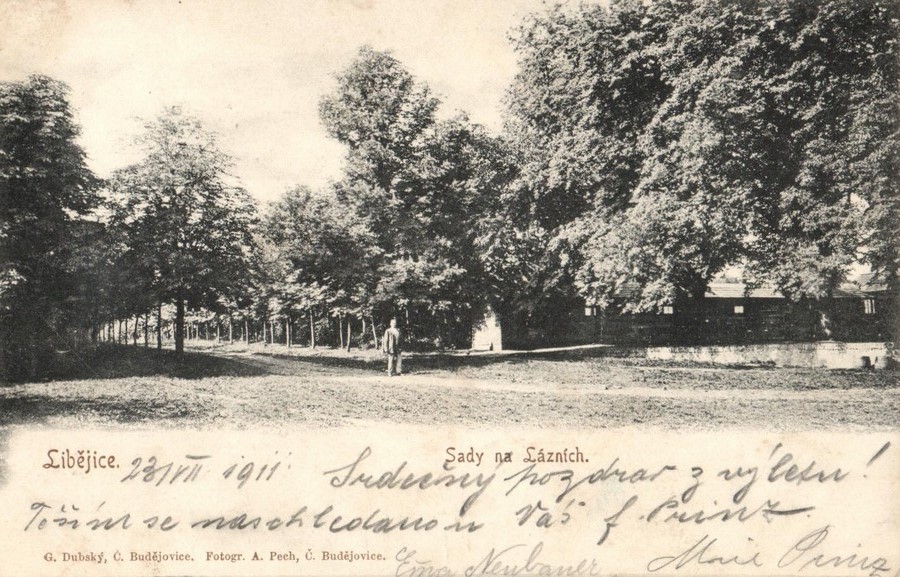 Libějice. Sady na Lázních.
23/VII 1911 Srdečný pozdrav z výletu!
Těším se naschledanou Váš f. Prinz.
G. Dubský, Č. Budějovice. Fotogr. A. Pech, Č. Budějovice.
Ema Neubauer Marie Prinz